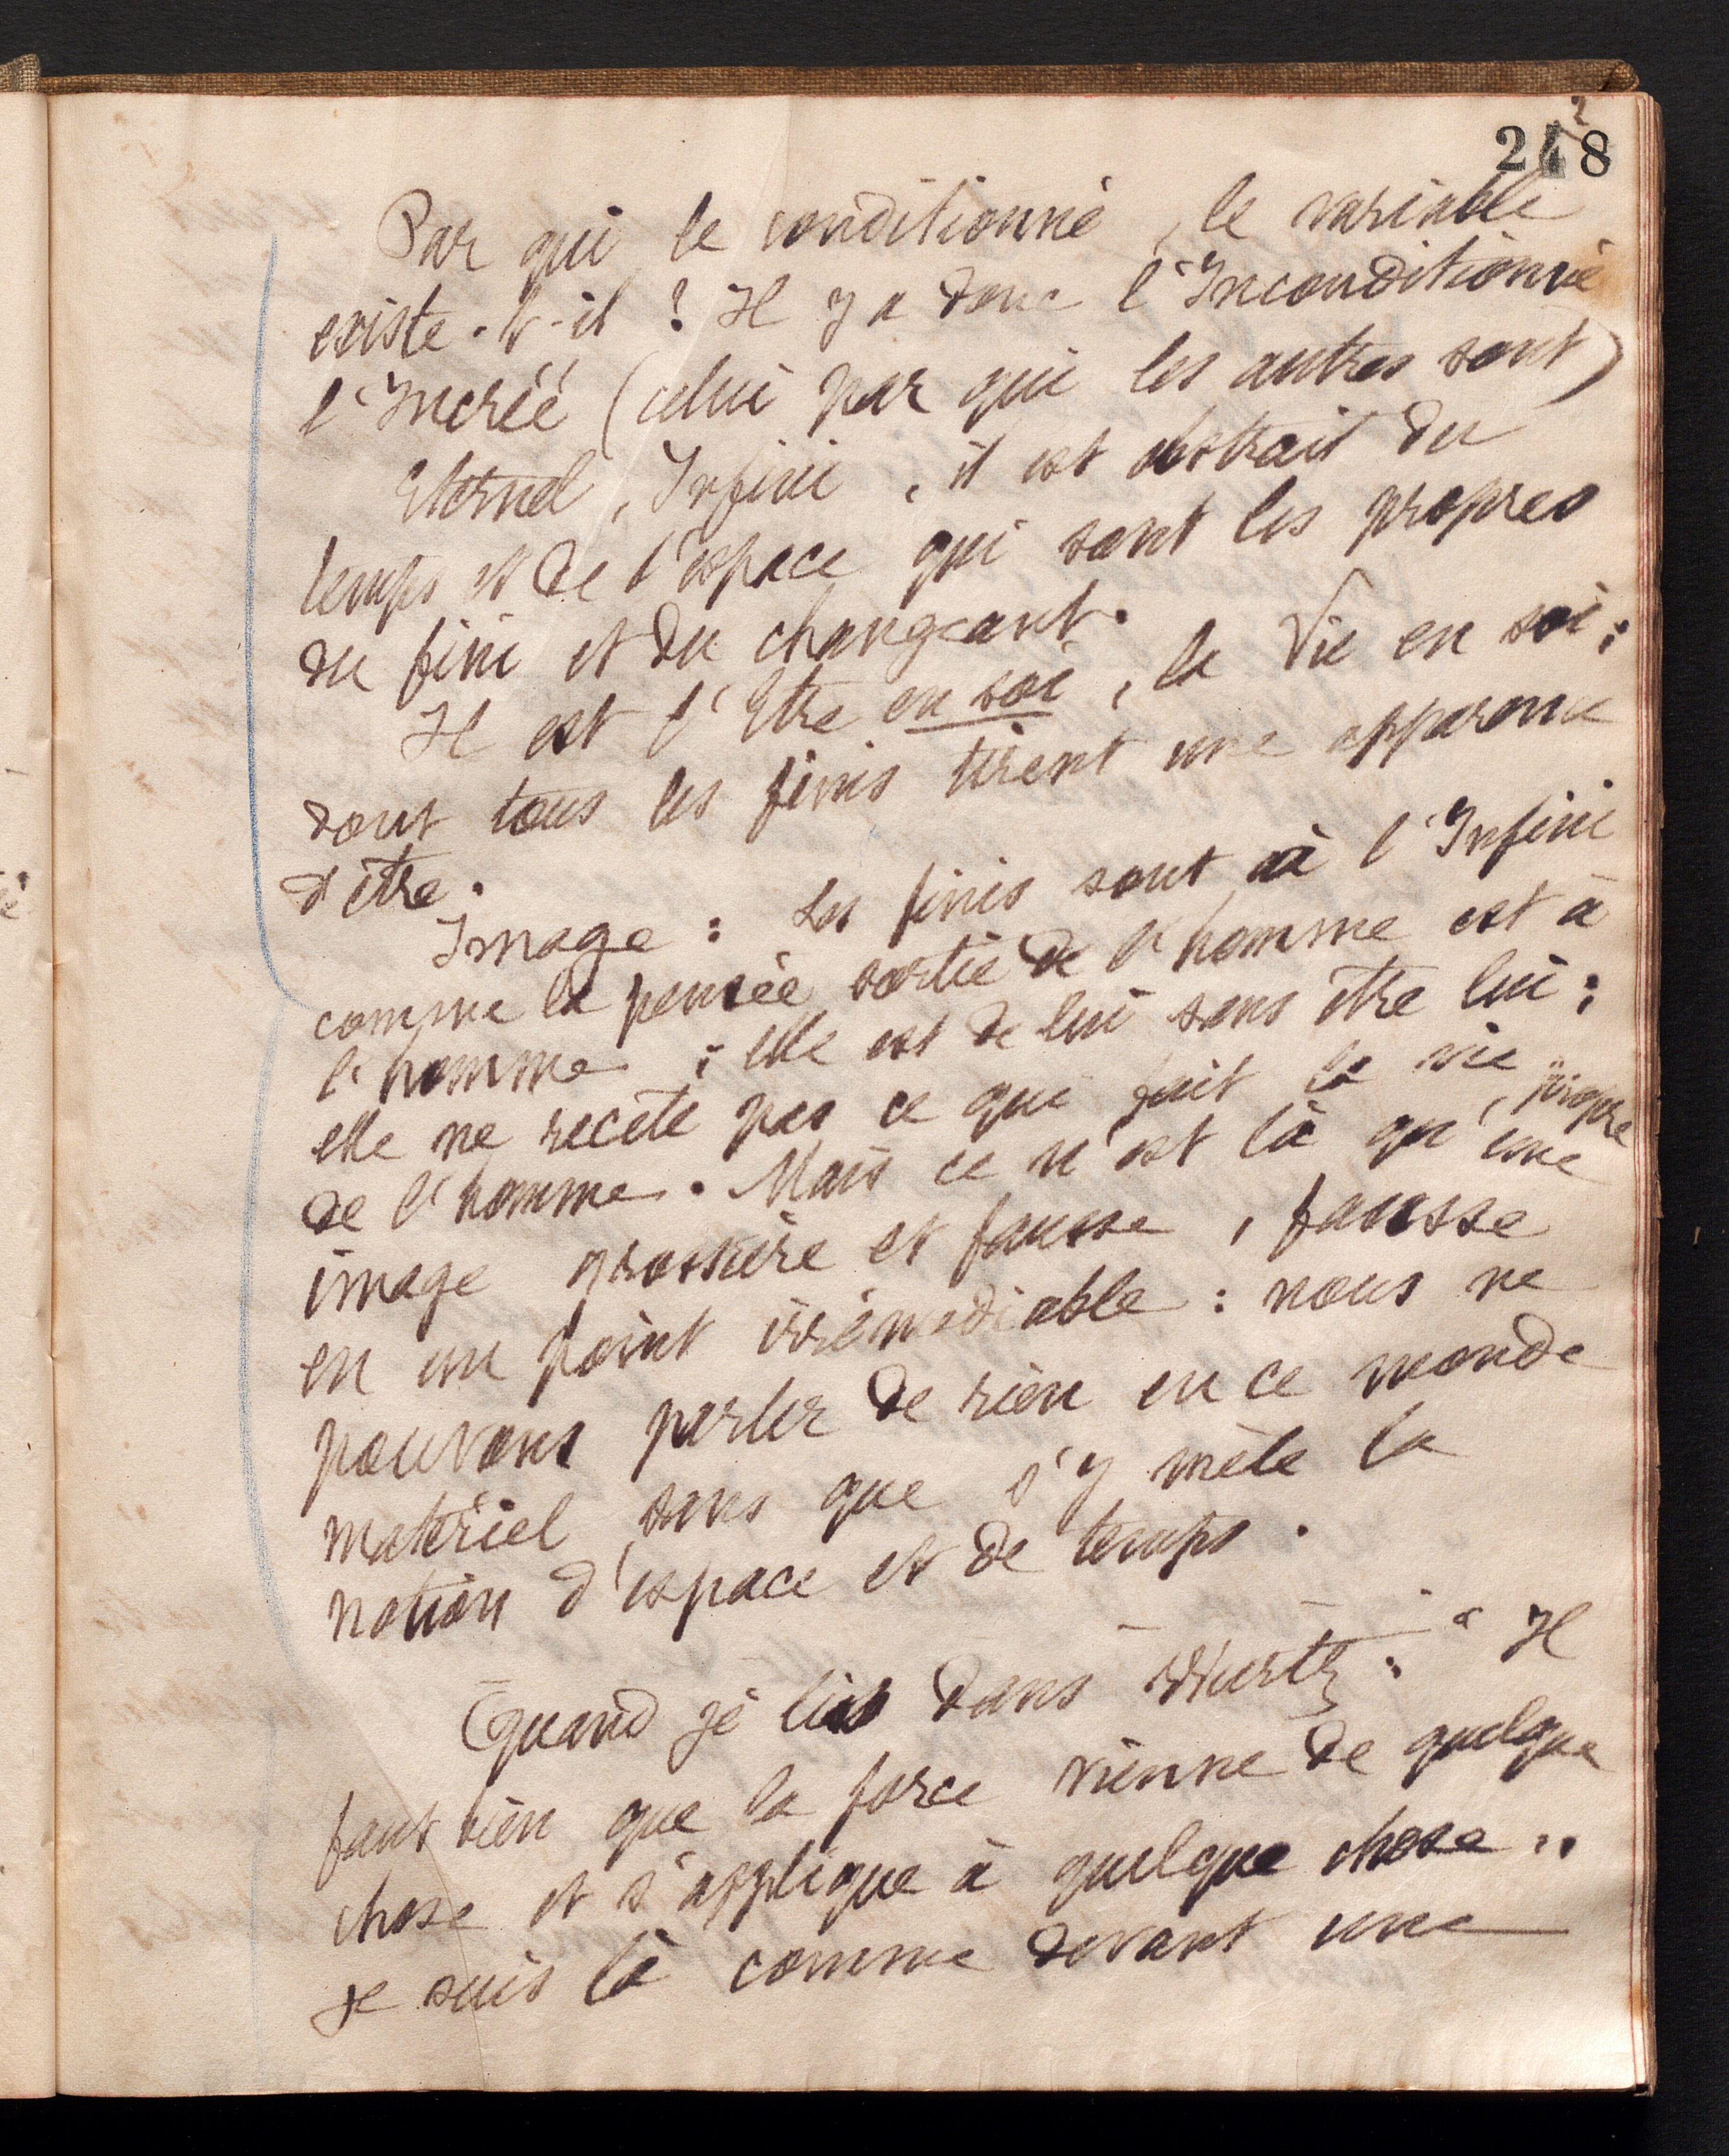 248
Par qui le conditionné, le variable
existe-t-il ? Il y a donc l'Inconditionné
l'Incréé (celui par qui les autres sont)
Eternel, Infini, il est abstrait du
temps et de l'espace qui sont les propres
du fini et du changeant.
Il est l'Etre en soi, la Vie en soi :
dont tous les finis tirent une apparence
d'être.
Image : Les finis sont à l'Infini
comme la pensée sortie de l'homme est à
l'homme ; elle est de lui sans être lui ;
elle ne recèle pas ce qui fait la vie propre
de l'homme. Mais ce n'est là qu'une
image grossière et fausse, fausse
en un point irrémédiable : nous ne
pouvons parler de rien en ce monde
matériel, sans que s'y mèle la
notion d'espace et de temps.
Quand je lis dans Wurtz : " Il
faut bien que la force vienne de quelque
chose et s'applique à quelque chose "
je suis là comme devant une